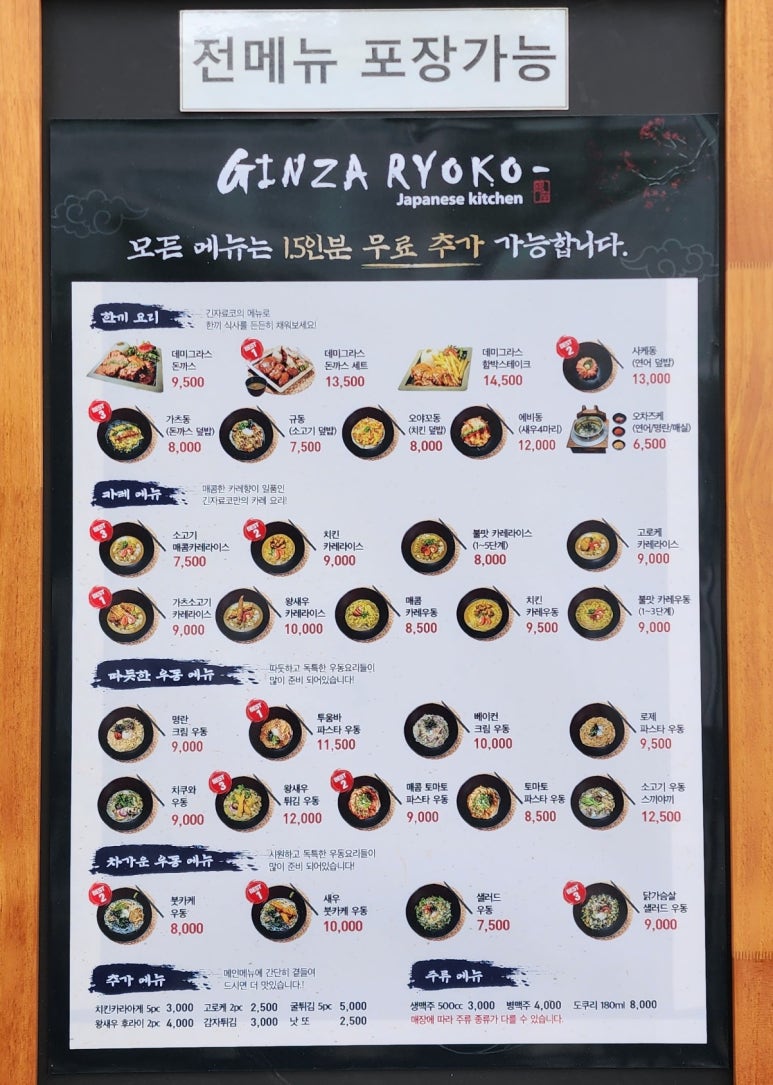 전메뉴 포장가능
GINZA RYOKO-
Japanese kitchen
모든 메뉴는 1.5인분 무료 추가 가능합니다.
한끼 요리
긴자료코의 메뉴로
한끼 식사를 든든히 채워보세요!
데미그라스
돈까스
9,500
BEST 1
데미그라스
돈까스 세트
13,500
데미그라스
함박스테이크
14,500
BEST 2
사케동
(연어 덮밥)
13,000
BEST 3
가츠동
(돈까스 덮밥)
8,000
규동
(소고기 덮밥)
7,500
오야꼬동
(치킨 덮밥)
8,000
에비동
(새우4마리)
12,000
오차즈케
(연어/명란/매실)
6,500
카레 메뉴
매콤한 카레향이 일품인
긴자료코만의 카레 요리!
BEST 3
소고기
매콤카레라이스
7,500
BEST 2
치킨
카레라이스
9,000
불맛 카레라이스
(1~5단계)
8,000
고로케
카레라이스
9,000
BEST 1
가츠소고기
카레라이스
9,000
왕새우
카레라이스
10,000
매콤
카레우동
8,500
치킨
카레우동
9,500
불맛 카레우동
(1~3단계)
9,000
따뜻한 우동 메뉴
따듯하고 독특한 우동요리들이
많이 준비 되어있습니다!
명란
크림 우동
9,000
BEST 1
투움바
파스타 우동
11,500
베이컨
크림 우동
10,000
로제
파스타 우동
9,500
치쿠와
우동
9,000
BEST 3
왕새우
튀김 우동
12,000
BEST 2
매콤 토마토
파스타 우동
9,000
토마토
파스타 우동
8,500
소고기 우동
스끼야끼
12,500
차가운 우동 메뉴
시원하고 독특한 우동요리들이
많이 준비 되어있습니다!
BEST 2
붓카케
우동
8,000
BEST 1
새우
붓카케 우동
10,000
샐러드
우동
7,500
BEST 3
닭가슴살
샐러드 우동
9,000
추가 메뉴
메인메뉴에 간단히 곁들여
드시면 더 맛있습니다!
치킨카라아게 5pc 3,000 고로케 2pc 2,500 굴튀김 5pc 5,000
왕새우 후라이 2pc 4,000 감자튀김 3,000 낫 또 2,500
주류 메뉴
생맥주 500cc 3,000 병맥주 4,000 도쿠리 180ml 8,000
매장에 따라 주류 종류가 다를 수 있습니다.